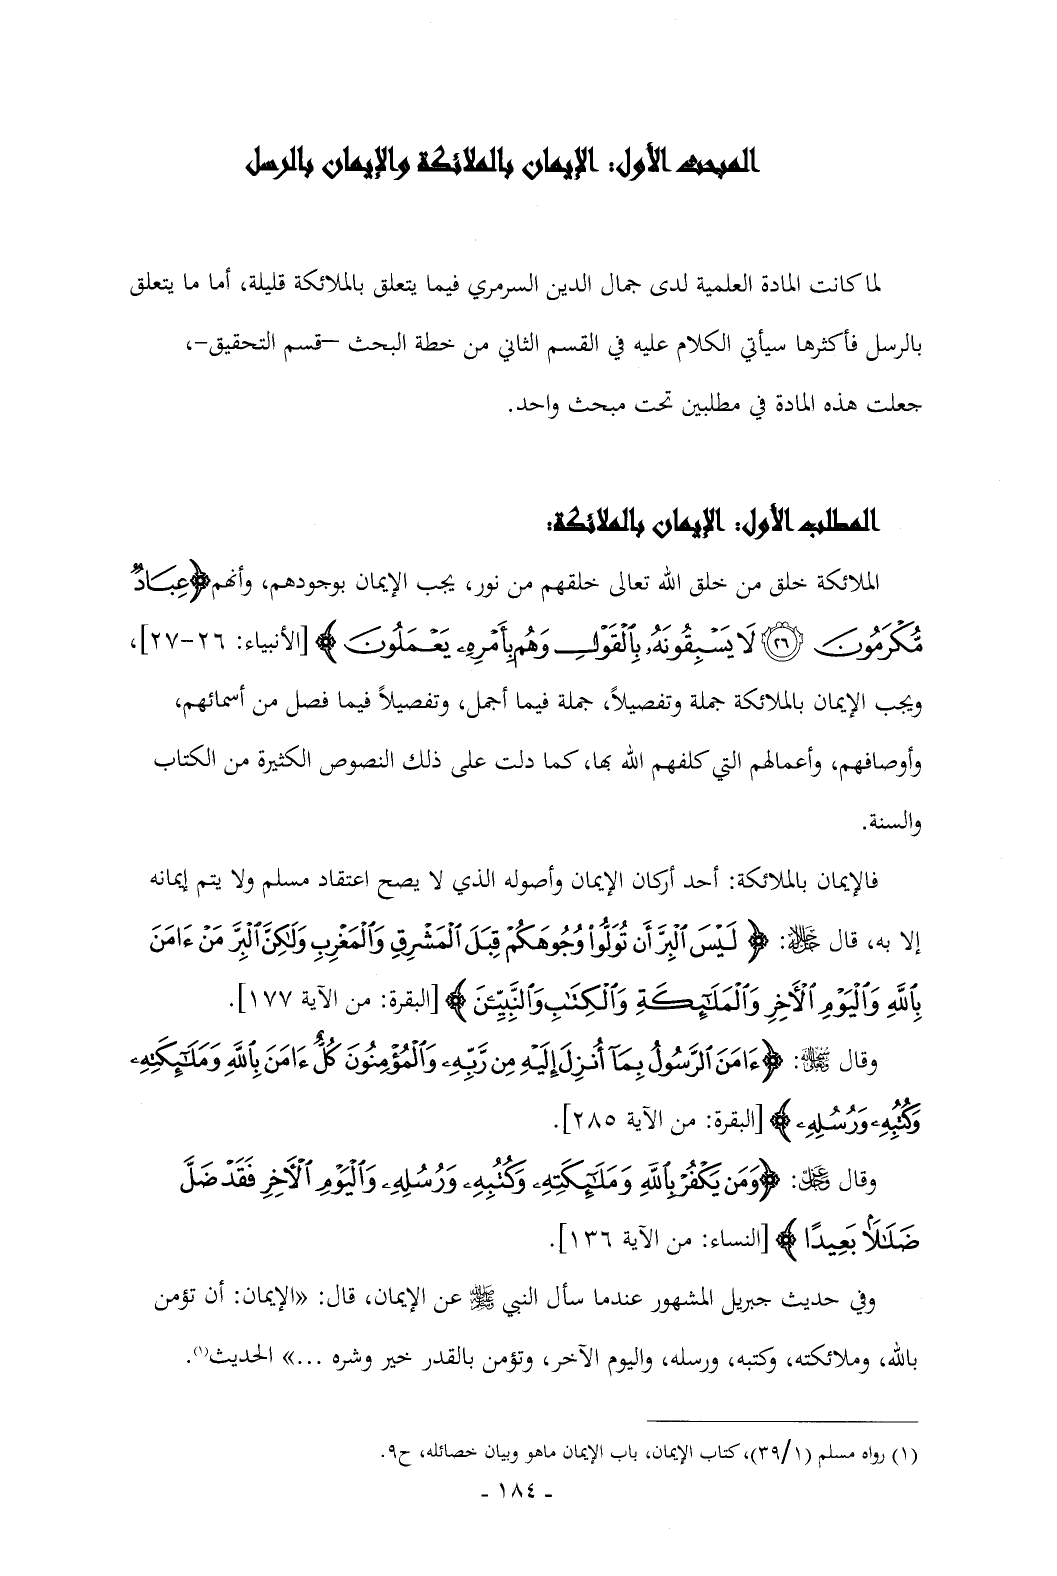 المبحث الأول: الإيمان بالملائكة والإيمان بالرسل
لما كانت المادة العلمية لدى جمال الدين السرمري فيما يتعلق بالملائكة قليلة، أما ما يتعلق
بالرسل فأكثرها سيأتي الكلام عليه في القسم الثاني من خطة البحث –قسم التحقيق–،
جعلت هذه المادة في مطلبين تحت مبحث واحد.
المطلب الأول: الإيمان بالملائكة:
الملائكة خلق من خلق الله تعالى خلقهم من نور، يجب الإيمان بوجودهم، وأنهم ﴿عِبَادٌ
مُّكْرَمُونَ ۝٢٦ لَا يَسْبِقُونَهُۥ بِٱلْقَوْلِ وَهُم بِأَمْرِهِۦ يَعْمَلُونَ﴾ [الأنبياء: ٢٦-٢٧]،
ويجب الإيمان بالملائكة جملة وتفصيلاً، جملة فيما أجمل، وتفصيلاً فيما فصل من أسمائهم،
وأوصافهم، وأعمالهم التي كلفهم الله بها، كما دلت على ذلك النصوص الكثيرة من الكتاب
والسنة.
فالإيمان بالملائكة: أحد أركان الإيمان وأصوله الذي لا يصح اعتقاد مسلم ولا يتم إيمانه
إلا به، قال ﷻ: ﴿لَيْسَ ٱلْبِرَّ أَن تُوَلُّوا۟ وُجُوهَكُمْ قِبَلَ ٱلْمَشْرِقِ وَٱلْمَغْرِبِ وَلَٰكِنَّ ٱلْبِرَّ مَنْ ءَامَنَ
بِٱللَّهِ وَٱلْيَوْمِ ٱلْأَخِرِ وَٱلْمَلَٰٓئِكَةِ وَٱلْكِتَٰبِ وَٱلنَّبِيِّۦنَ﴾ [البقرة: من الآية ١٧٧].
وقال : ﴿ءَامَنَ ٱلرَّسُولُ بِمَآ أُنزِلَ إِلَيْهِ مِن رَّبِّهِۦ وَٱلْمُؤْمِنُونَ كُلٌّ ءَامَنَ بِٱللَّهِ وَمَلَٰٓئِكَتِهِۦ
وَكُتُبِهِۦ وَرُسُلِهِۦ﴾ [البقرة: من الآية ٢٨٥].
وقال : ﴿وَمَن يَكْفُرْ بِٱللَّهِ وَمَلَٰٓئِكَتِهِۦ وَكُتُبِهِۦ وَرُسُلِهِۦ وَٱلْيَوْمِ ٱلْأَخِرِ فَقَدْ ضَلَّ
ضَلَٰلَۢا بَعِيدًا﴾ [النساء: من الآية ١٣٦].
وفي حديث جبريل المشهور عندما سأل النبي ﷺ عن الإيمان، قال: «الإيمان: أن تؤمن
بالله، وملائكته، وكتبه، ورسله، واليوم الآخر، وتؤمن بالقدر خير وشره ...» الحديث(١).
(١) رواه مسلم (٣٩/١)، كتاب الإيمان، باب الإيمان ماهو وبيان خصائله، ح٩.
- ١٨٤ -